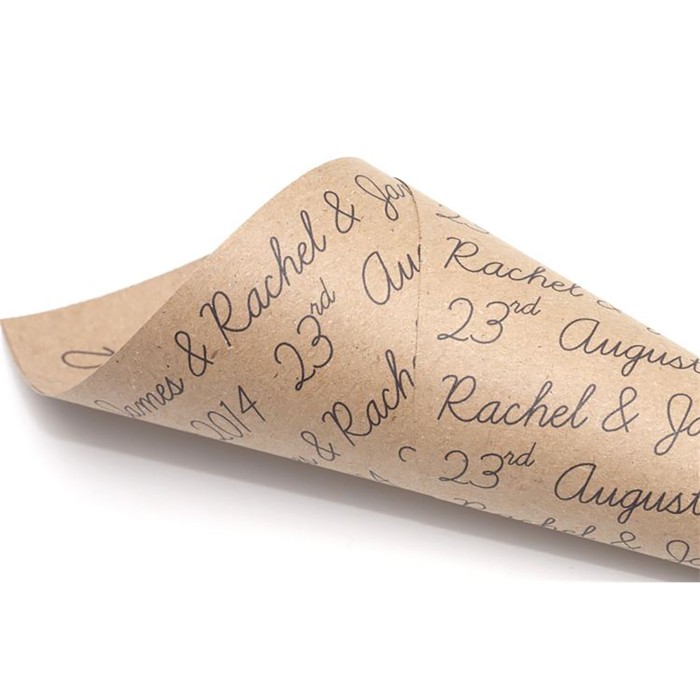 James & Rachel & Ja
2014 23rd Au
& Rach
Rachel &
23rd August
Rachel & Ja
23rd August
Rachel & Ja